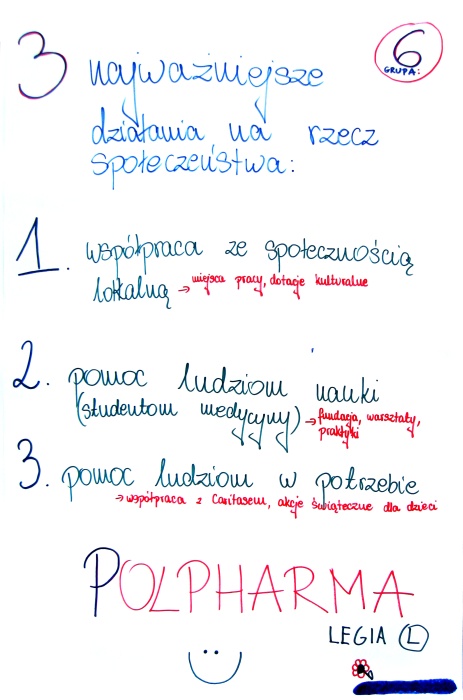 3 najważniejsze
6
GRUPA:
działania na rzecz
społeczeństwa:
1. współpraca ze społecznością
lokalną → miejsca pracy, dotacje kulturalne
2. pomoc ludziom nauki
(studentom medycyny) → fundacja, warsztaty,
praktyki
3. pomoc ludziom w potrzebie
→ współpraca z Caritasem, akcje świąteczne dla dzieci
POLPHARMA
LEGIA L